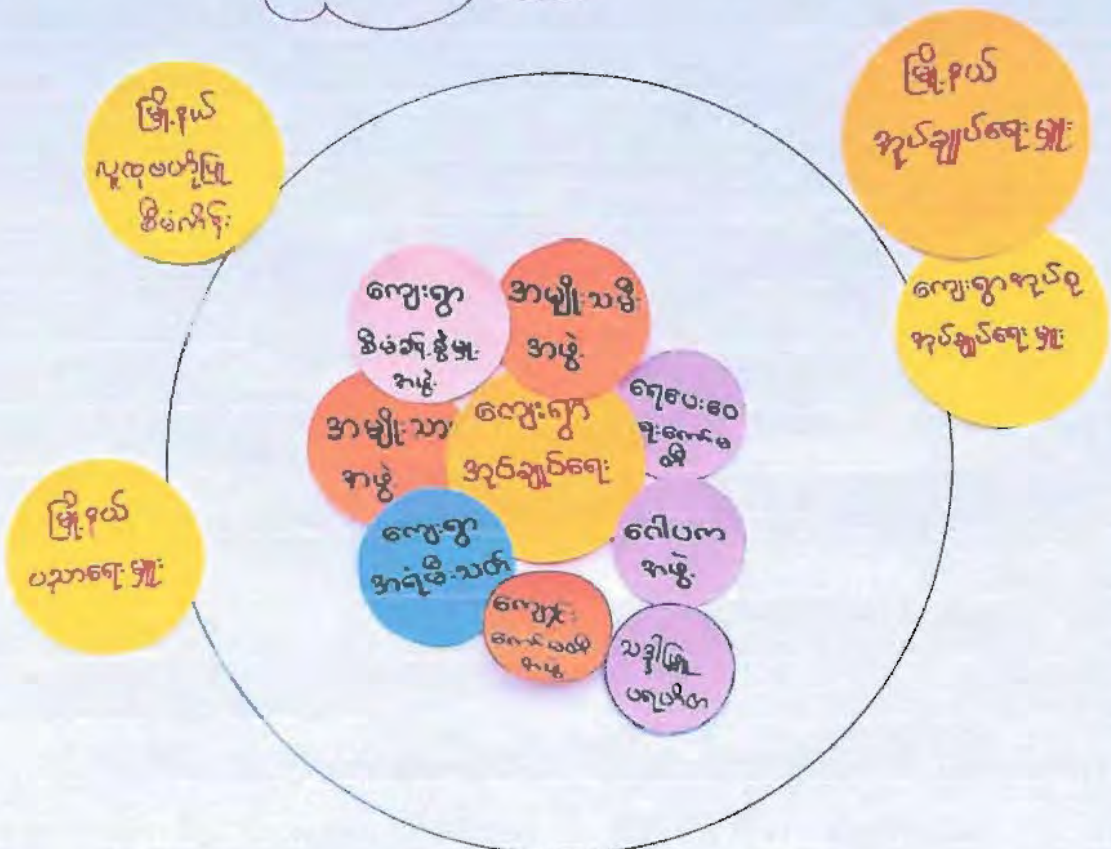 မြို့နယ်
လူထုဗဟိုပြု
စီမံကိန်း
မြို့နယ်
အုပ်ချုပ်ရေးမှူး
ကျေးရွာအုပ်စု
အုပ်ချုပ်ရေးမှူး
ကျေးရွာ
စီမံခန့်ခွဲမှု
အဖွဲ့
အမျိုးသမီး
အဖွဲ့
ရေပေးဝေ
ရေးကော်မ
တီ
အမျိုးသား
အဖွဲ့
ကျေးရွာ
အုပ်ချုပ်ရေး
မြို့နယ်
ပညာရေးမှူး
ကျေးရွာ
အရံမီးသတ်
ဂေါပက
အဖွဲ့
ကျောင်း
ကော်မတီ
အဖွဲ့
သဒ္ဓါဖြူ
ပရဟိတ